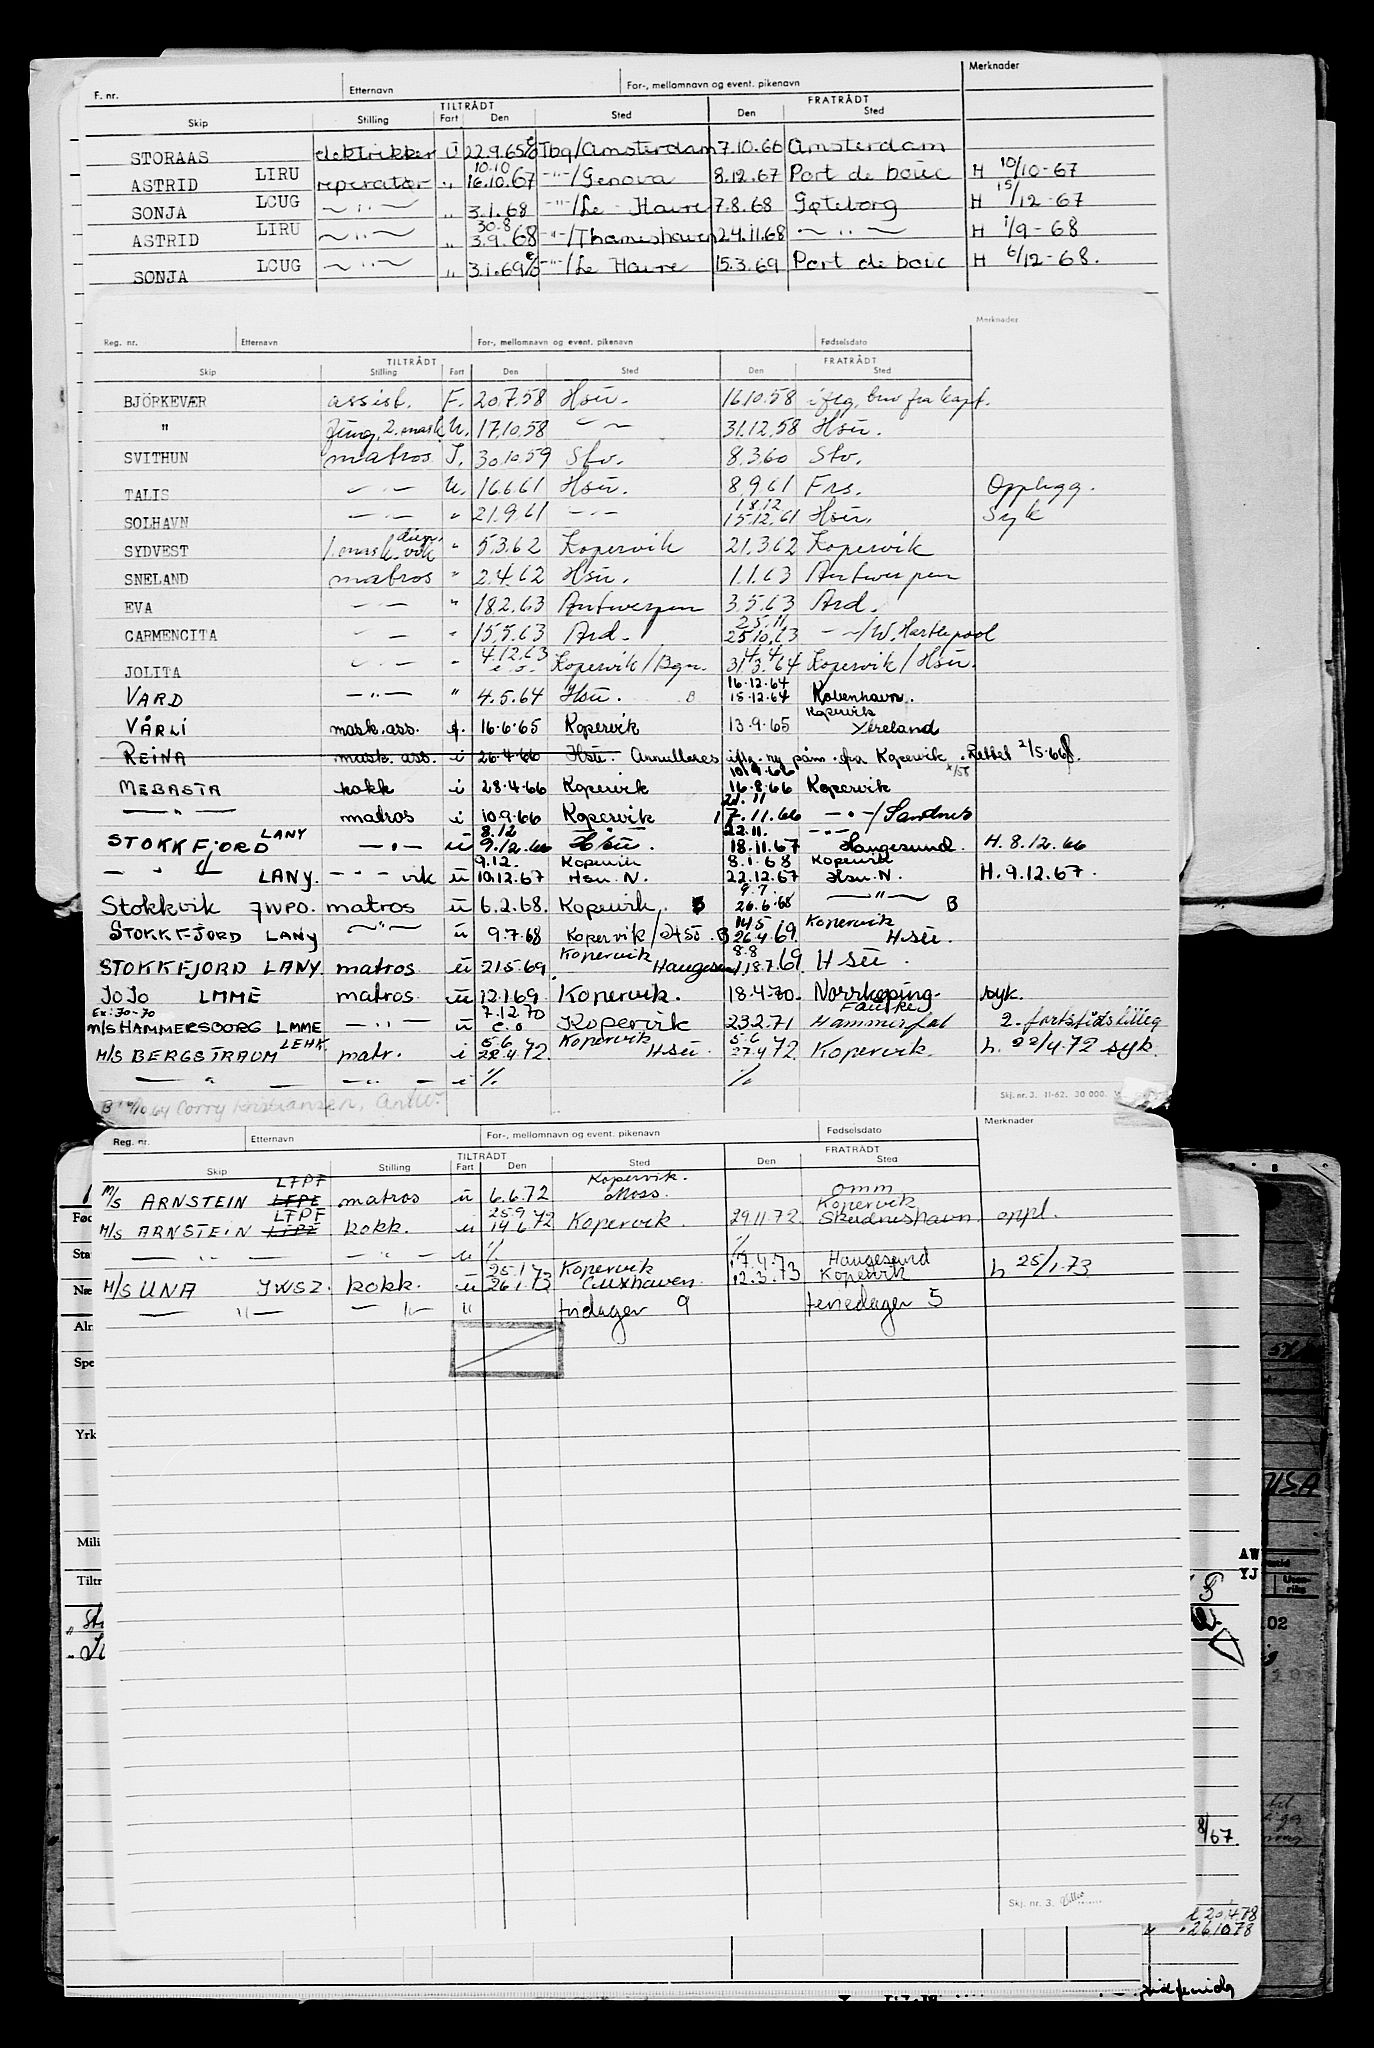 F. nr. Etternavn For-, mellomnavn og event. pikenavn Merknader
TILTRÅDT FRATRÅDT
Skip Stilling Fart Den Sted Den Sted
STORAAS elektrikker ü 22.9.65 Tbg/Amsterdam 7.10.66 Amsterdam
10.10
ASTRID LIRU reperatør " 16.10.67 -"-/Genova 8.12.67 Port de bouc H 10/10-67
SONJA LCUG -"- " 3.1.68 -"-/Le Havre 7.8.68 Gøteborg H 15/12-67
30.8
ASTRID LIRU -"- " 3.9.68 -"-/Thameshaven 24.11.68 -"- H 1/9-68
SONJA LCUG -"- " 3.1.69 -"-/Le Havre 15.3.69 Port de bouc H 6/12-68.
Merknader
Reg. nr. Etternavn For-, mellomnavn og event. pikenavn Fødselsdato
TILTRÅDT FRATRÅDT
Skip Stilling Fart Den Sted Den Sted
BJÖRKEVÆR assist. F. 20.7.58 Hsu. 16.10.58 iflg. brev fra kapt.
" fung. 2. mask U. 17.10.58 -"- 31.12.58 Hsu.
SVITHUN matros I. 30.10.59 Stv. 8.3.60 Stv.
TALIS -"- U. 16.6.61 Hsu. 8.9.61 Frs. Opplegg.
18.12
SOLHAVN -"- " 21.9.61 -"- 15.12.61 Hsu. Syk
SYDVEST 1. mask. vik " 5.3.62 Kopervik 21.3.62 Kopervik
SNELAND matros " 2.4.62 Hsu. 1.1.63 Antwerpen
EVA -"- " 18.2.63 Antwerpen 3.5.63 Ard.
25.11
CARMENCITA -"- " 15.5.63 Ard. 25.10.63 -"-/W. Hartlepool
4.12.63 4.4
JOLITA -"- " Kopervik/Bgn. 31.3.64 Kopervik/Hsu.
16.12.64
VARD -"- " 4.5.64 Hsu. B 15.12.64 København.
Kopervik
VÅRLI mask.ass. 16.6.65 Kopervik 13.9.65
REINA mask. ass. i 26.4.66 Hsu. Annulleres iflg. ny påm. fra Kopervik. Rettet 2/5-66
10.9.66
MEBASTA kokk i 28.4.66 Kopervik 16.8.66 Kopervik
21.11
-"- matros i 10.9.66 Kopervik 17.11.66 -"-/Sandnes
8.12 22.11. -"-
STOKKFJORD LANY -"- ü 9.12.66 Hsu. 18.11.67 Haugesund. H. 8.12.66
9.12. Kopervik 8.1.68 Kopervik
-"- LANY. -"- vik ü 10.12.67 Hsu. N. 22.12.67 Hsu. N. H. 9.12.67.
9.7.
Stokkvik JWPO. matros ü 6.2.68. Kopervik. B 26.6.68 -"- B
14.5 Kopervik
STOKKFJORD LANY -"- ü 9.7.68 Kopervik/Hsü. B 26.4.69. Hsü.
Kopervik 8.8
STOKKFJORD LANY. matros ü 21.5.69. Haugesund 18.7.69. Hsü.
JoJo LMME matros ü 12.1.69. Kopervik. 18.4.70. Norrkøping. syk.
Ex: JO-JO 7.12.70 Fauske
M/S HAMMERSBORG LMME -"- ü e.o Kopervik 23.2.71 Hammerfest 2. fartstidstillegg
5.6 Kopervik 5.6
M/S BERGSTRAUM LEHK matr. i 22.4.72. Hsü. 27.4.72 Kopervik. h. 22/4.72 syk.
-"- -"- i % %
B 10/10 64 Corry Kristiansen, Antw. Skj. nr. 3. 11-62. 30 000.
Reg. nr. Etternavn For-, mellomnavn og event. pikenavn Fødselsdato Merknader
TILTRÅDT FRATRÅDT
Skip Stilling Fart Den Sted Den Sted
LTPF Kopervik.
M/S ARNSTEIN LFPE matros ü 6.6.72 Moss. omm
LTPF 25.9 Kopervik
M/S ARNSTEIN kokk. ü 14.6.72 Kopervik. 29.11.72. Skudneshavn. oppl.
-"- -"- ü % %
25.1 Kopervik 17.4.73 Haugesund
M/S UNA JWSZ. kokk. ü 26.1.73 Cuxhaven. 12.3.73 Kopervik h 25/1.73
-"- -"- " fridager 9 feriedager 5
Skj. nr. 3.
Fød
Sta
Næ
Aln
Spe
Yrk
Mili
Tiltr
USA
AW
YJ
Uten-
riks
02
8/67
20.4.78
26.10.78